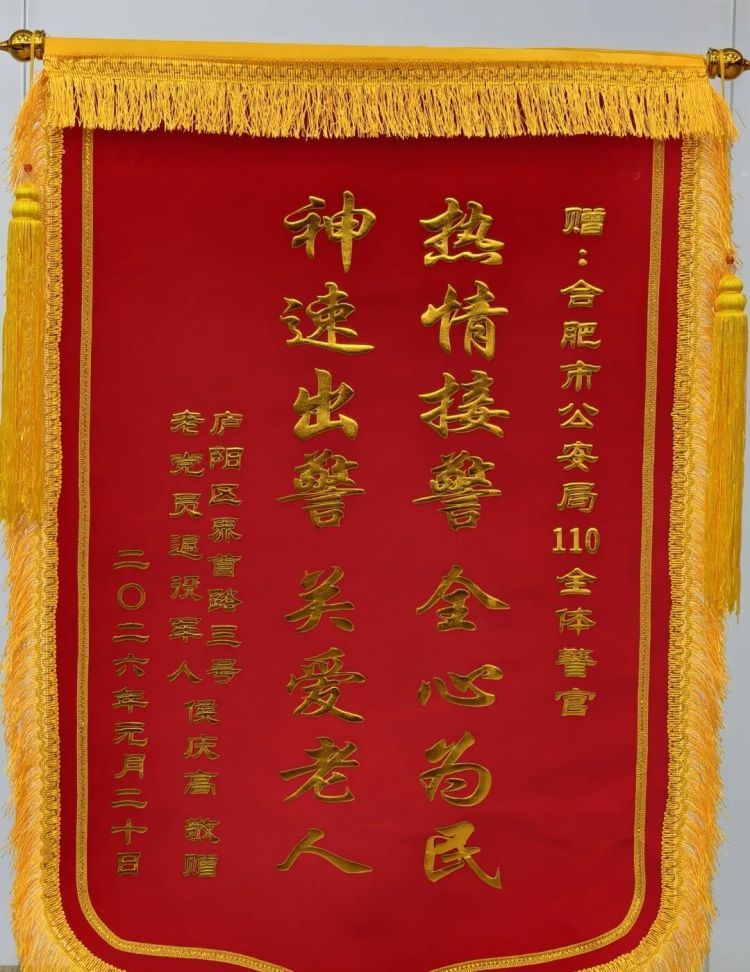 赠：合肥市公安局110全体警官
热情接警 全心为民
神速出警 关爱老人
庐阳区界首路三号
老党员退役军人 侯庆高 敬赠
二〇二六年元月二十日